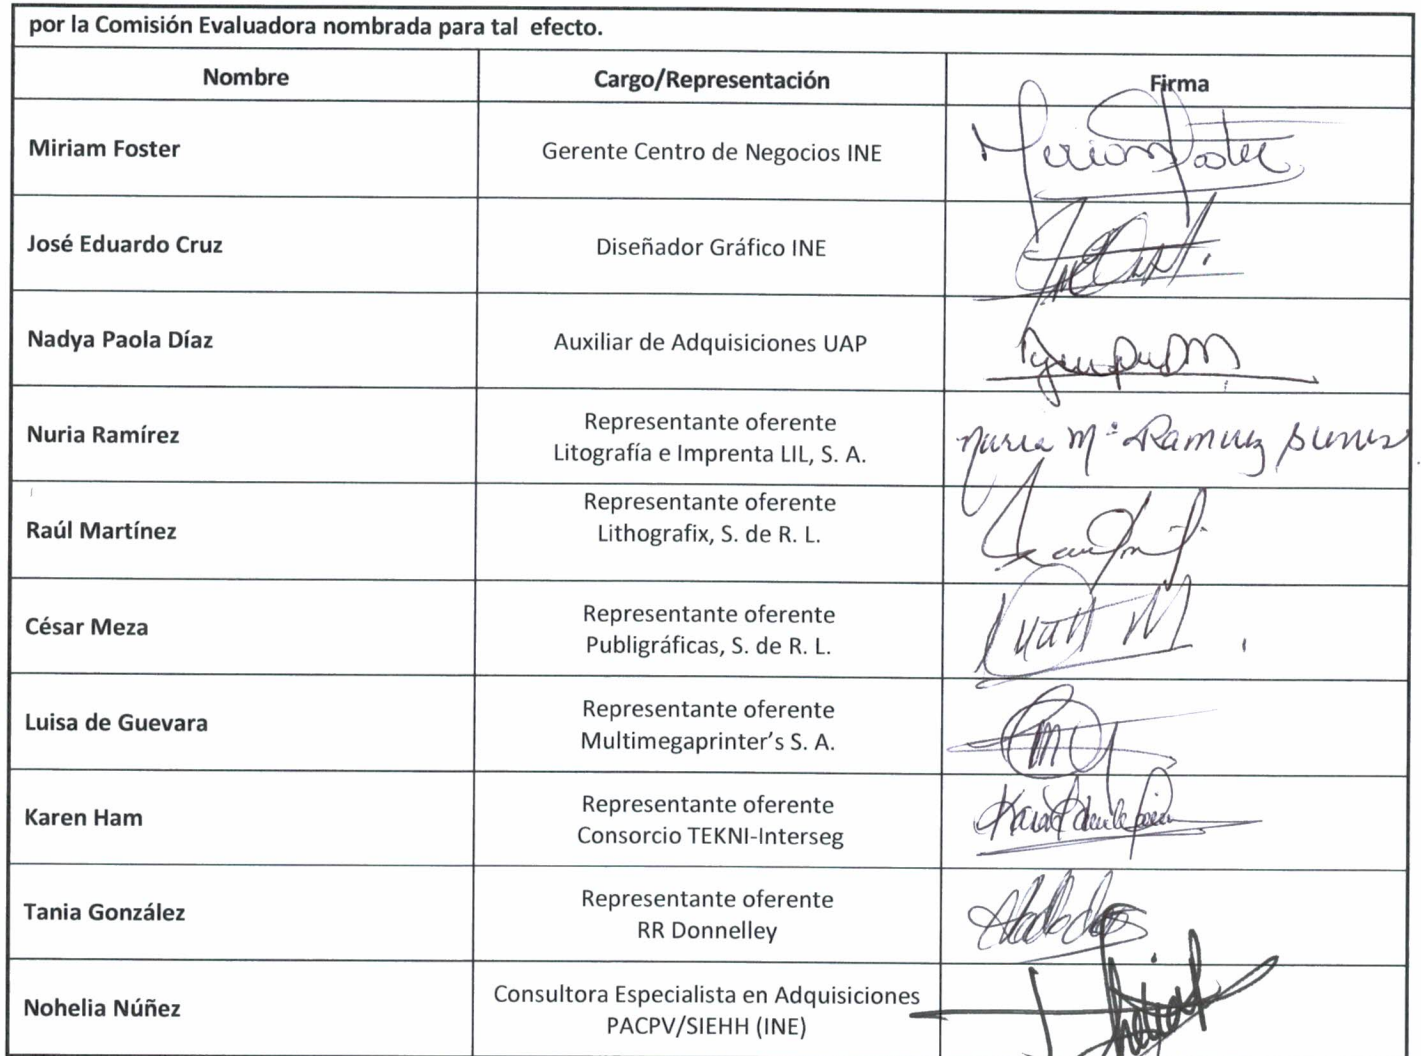 por la Comisión Evaluadora nombrada para tal efecto.
Nombre Cargo/Representación Firma
Miriam Foster Gerente Centro de Negocios INE Miriam Foster
José Eduardo Cruz Diseñador Gráfico INE
Nadya Paola Díaz Auxiliar de Adquisiciones UAP
Nuria Ramírez Representante oferente
Litografía e Imprenta LIL, S. A. Nuria Mª Ramirez
Raúl Martínez Representante oferente
Lithografix, S. de R. L.
César Meza Representante oferente
Publigráficas, S. de R. L.
Luisa de Guevara Representante oferente
Multimegaprinter's S. A.
Karen Ham Representante oferente
Consorcio TEKNI-Interseg
Tania González Representante oferente
RR Donnelley
Nohelia Núñez Consultora Especialista en Adquisiciones
PACPV/SIEHH (INE)